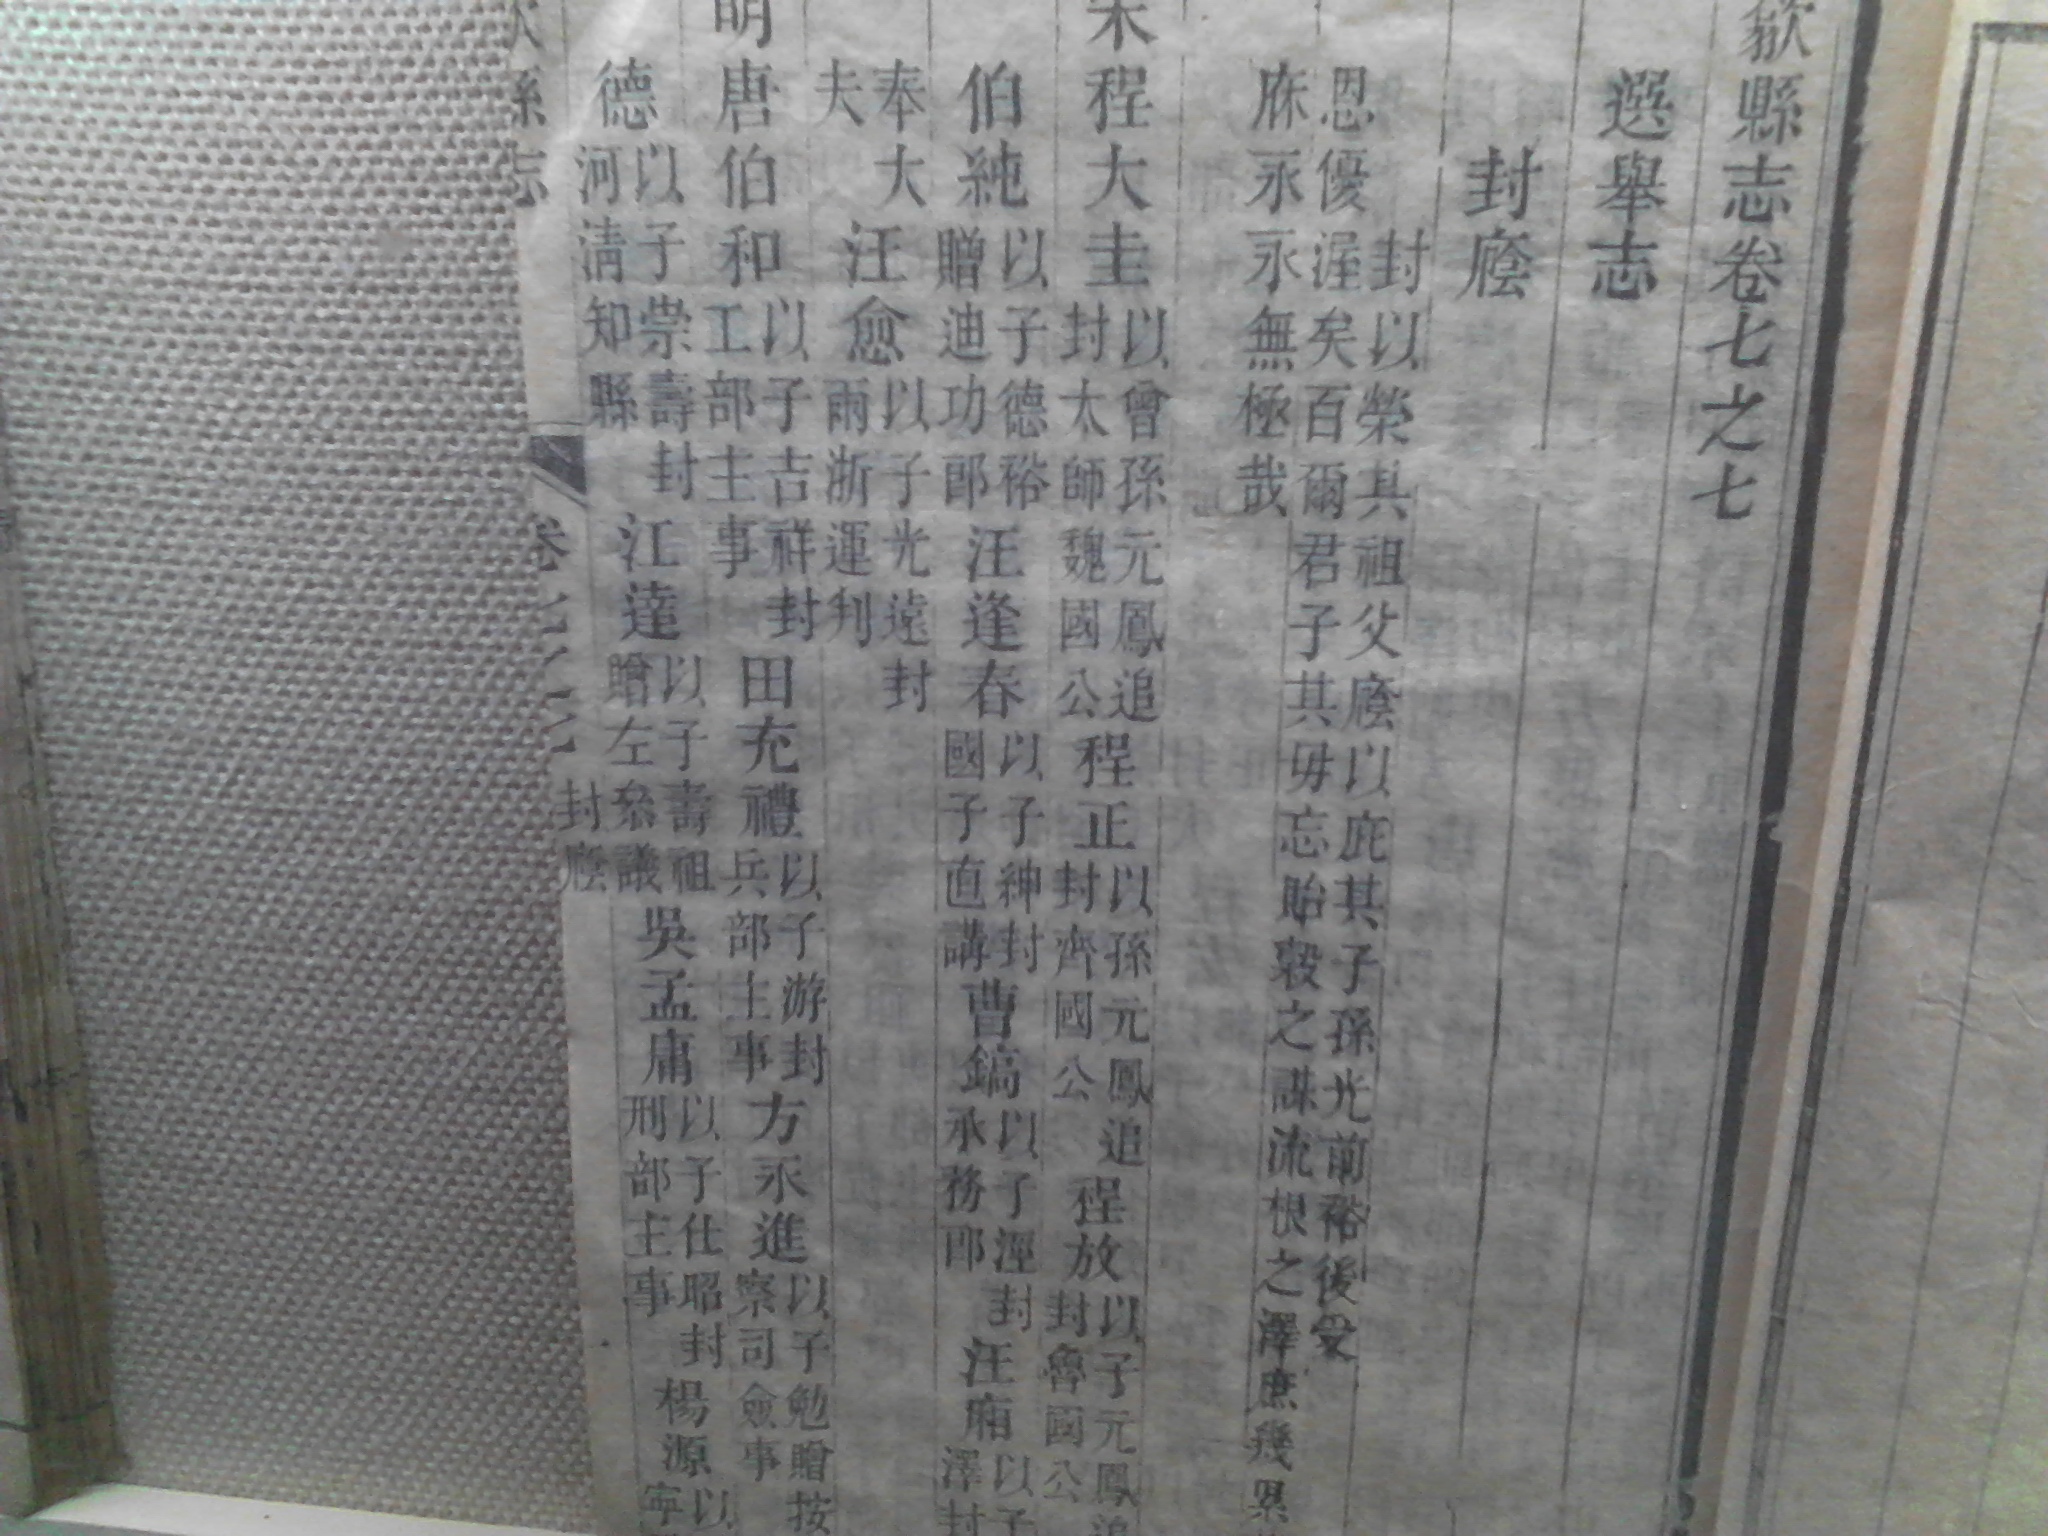 歙縣志卷七之七
選舉志
封廕
封以榮其祖父廕以庇其子孫光前裕後受
恩優渥矣百爾君子共毋忘貽穀之謀流根之澤庶幾累
庥永永無極哉
宋
程大圭以曾孫元鳳追封太師魏國公程正以孫元鳳追封齊國公程放以子元鳳追封魯國公
伯純以子德裕贈迪功郎汪逢春以子紳封國子直講曹鎬以子溼封承務郎汪廂以子澤封
奉大夫汪愈以子光遠封兩浙運判
明
唐伯和以子吉祥封工部主事田充禮以子游封兵部主事方永進以子勉贈按察司僉事
德以子崇壽封河清知縣江達以子壽祖贈左叅議吳孟庸以子仕昭封刑部主事楊源以寧
歙縣志
卷
封廕